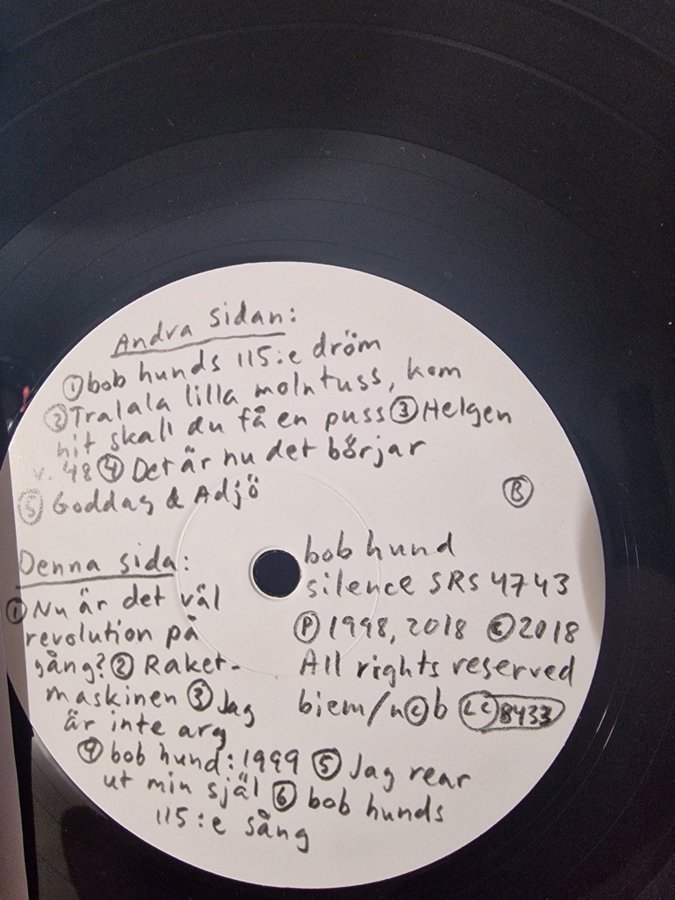 Andra sidan:
① bob hunds 115:e dröm
② Tralala lilla molntuss, kom
hit skall du få en puss ③ Helgen
v. 48 ④ Det är nu det börjar
⑤ Goddag & Adjö
B
Denna sida:
① Nu är det väl
revolution på
gång? ② Raket-
maskinen ③ Jag
är inte arg
④ bob hund: 1999 ⑤ Jag rear
ut min själ ⑥ bob hunds
115:e sång
bob hund
silence SRS 4743
Ⓟ 1998, 2018 © 2018
All rights reserved
biem/n©b LC 8433